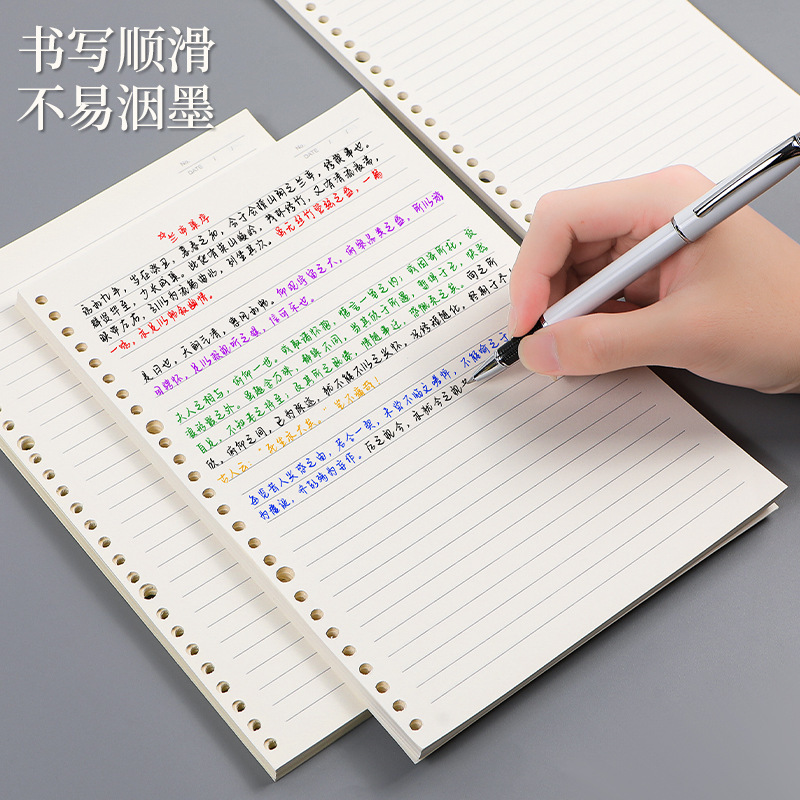 书写顺滑
不易洇墨
No.
DATE / /
No.
DATE / /
兰亭集序
永和九年，岁在癸丑，暮春之初，会于会稽山阴之兰亭，修禊事也。
群贤毕至，少长咸集。此地有崇山峻岭，茂林修竹，又有清流激湍，
映带左右，引以为流觞曲水，列坐其次。虽无丝竹管弦之盛，一觞
一咏，亦足以畅叙幽情。
是日也，天朗气清，惠风和畅。仰观宇宙之大，俯察品类之盛，所以游
目骋怀，足以极视听之娱，信可乐也。
夫人之相与，俯仰一世。或取诸怀抱，悟言一室之内；或因寄所托，放
浪形骸之外。虽趣舍万殊，静躁不同，当其欣于所遇，暂得于己，快然
自足，不知老之将至；及其所之既倦，情随事迁，感慨系之矣。向之所
欣，俯仰之间，已为陈迹，犹不能不以之兴怀，况修短随化，终期于
古人云："死生亦大矣。"岂不痛哉！
每览昔人兴感之由，若合一契，未尝不临文嗟悼，不能喻之于
为虚诞，齐彭殇为妄作。后之视今，亦犹今之视